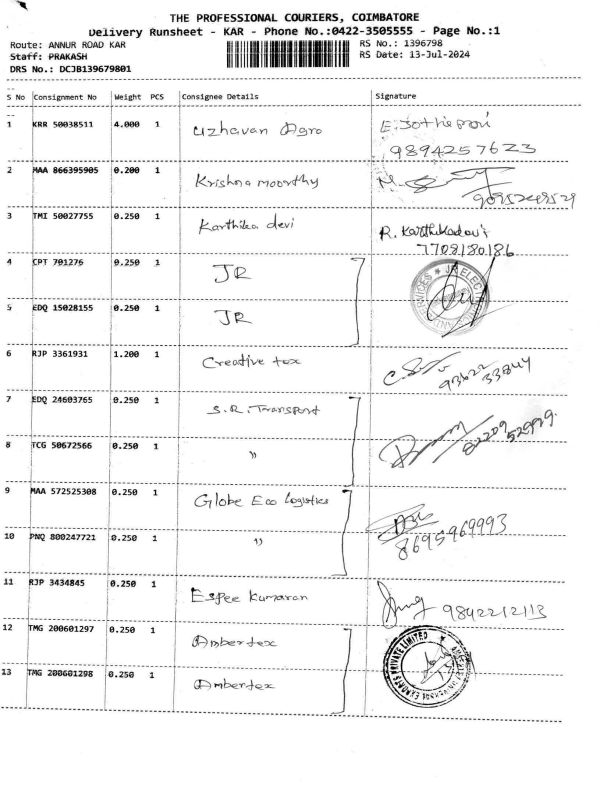 THE PROFESSIONAL COURIERS, COIMBATORE
Delivery Runsheet - KAR - Phone No.:0422-3505555 - Page No.:1
Route: ANNUR ROAD KAR RS No.: 1396798
Staff: PRAKASH RS Date: 13-Jul-2024
DRS No.: DCJB139679801
S No Consignment No Weight PCS Consignee Details Signature
1 KRR 50038511 4.000 1 Uzhavan Agro E. Jothieswari
9894257623
2 MAA 866395905 0.200 1 Krishna moorthy
3 TMI 50027755 0.250 1 Karthika devi R. Karthikadevi
7708180186
4 CPT 701276 0.250 1 JR
5 EDQ 15028155 0.250 1 JR
6 RJP 3361931 1.200 1 Creative tex
93622 33844
7 EDQ 24603765 0.250 1 S.R. Transport
8 TCG 50672566 0.250 1 "
82209 52929
9 MAA 572525308 0.250 1 Globe Eco logistics
10 PNQ 800247721 0.250 1 "
8695969993
11 RJP 3434845 0.250 1 Espee Kumaran 9842212113
12 TMG 200601297 0.250 1 Ambertex
13 TMG 200601298 0.250 1 Ambertex